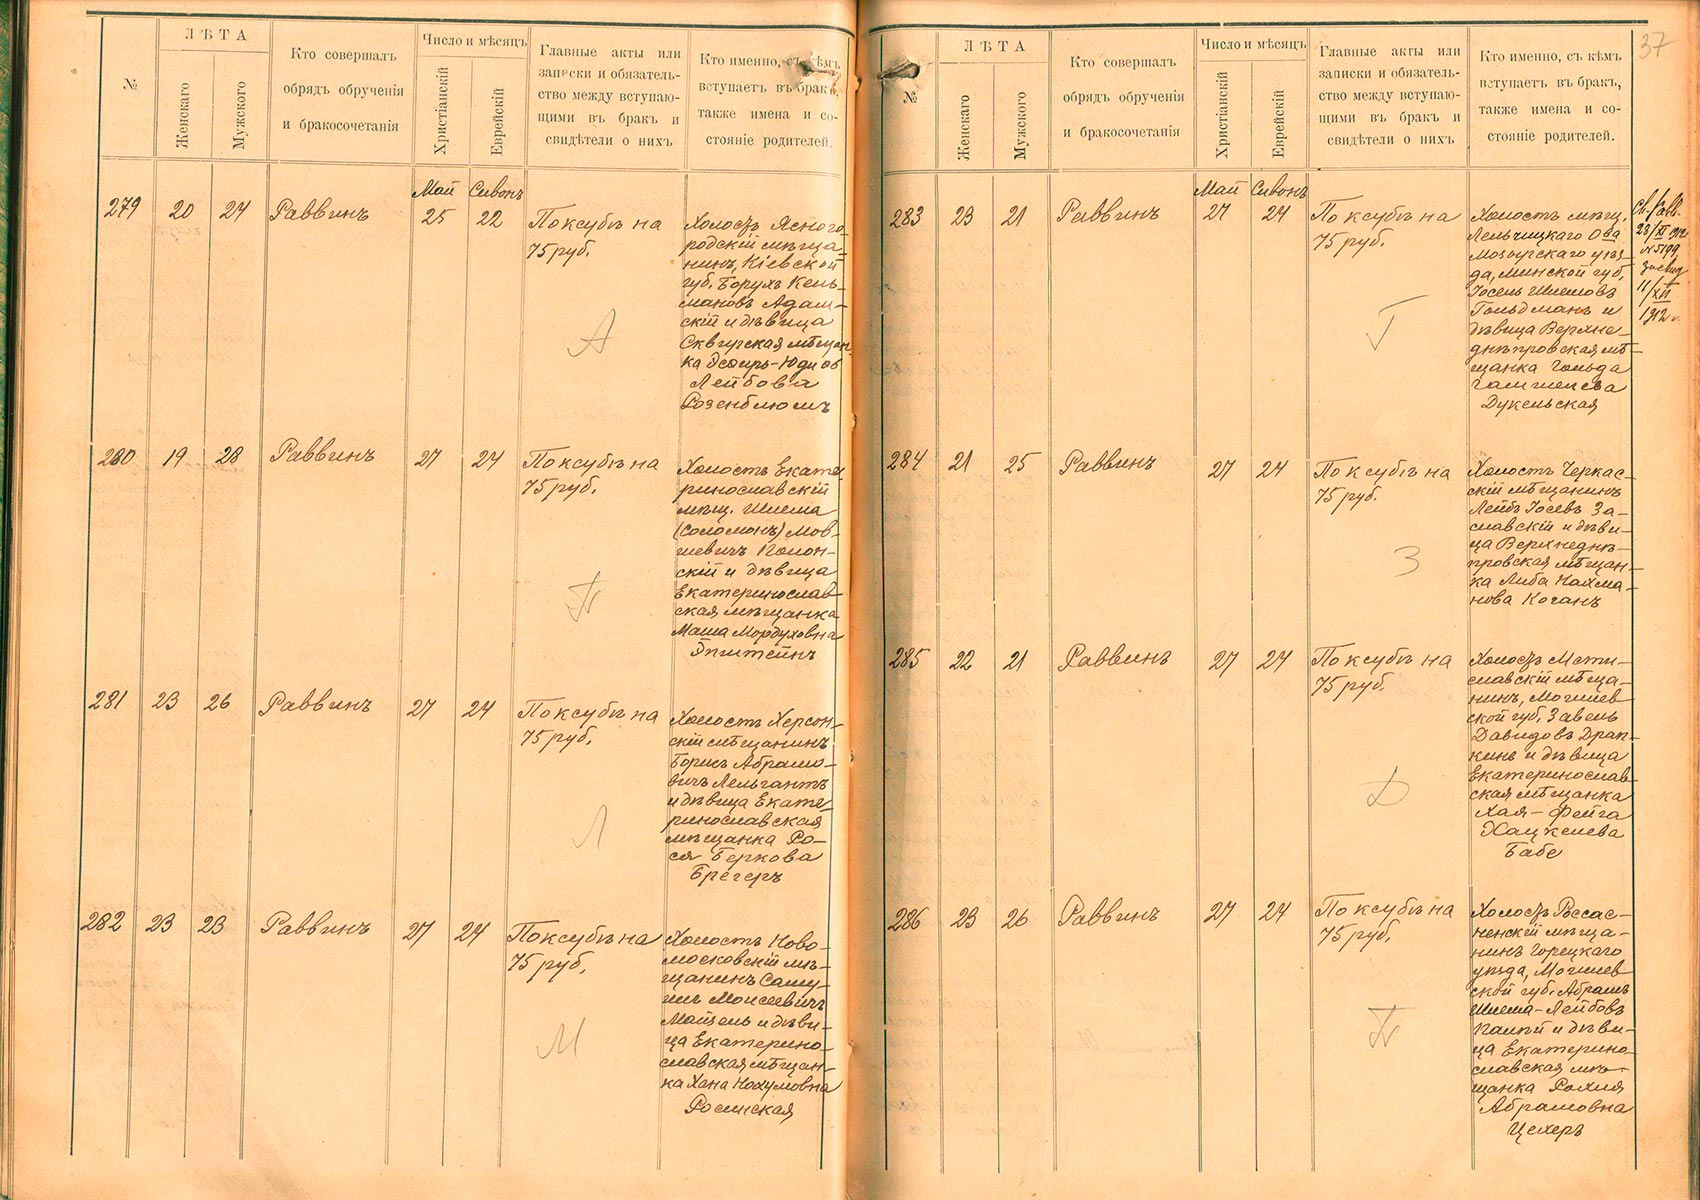 №
ЛѢТА
Женскаго
Мужского
Кто совершалъ
обрядъ обрученія
и бракосочетанія
Число и мѣсяцъ
Христіанскій
Еврейскій
Главные акты или
записки и обязатель-
ство между вступаю-
щими въ бракъ и
свидѣтели о нихъ
Кто именно, съ кѣмъ
вступаетъ въ бракъ,
также имена и со-
стояніе родителей.
Май Сивонъ
279 20 24 Раввинъ 25 22 По ксубѣ на
75 руб.
Холостъ Ясного-
родскій мѣща-
нинъ, Кіевской
губ. Борухъ Кель-
мановъ Адам-
скій и дѣвица
Сквирская мѣщан-
ка Эсѳирь-Юдиѳь
Лейбова
Розенблюмъ
А
280 19 28 Раввинъ 27 24 По ксубѣ на
75 руб.
Холостъ Екате-
ринославскій
мѣщ. Шлема
(Соломонъ) Мов-
шевичъ Полон-
скій и дѣвица
Екатеринослав-
ская мѣщанка
Маша Мордуховна
Эпштейнъ
П
281 23 26 Раввинъ 27 24 По ксубѣ на
75 руб.
Холостъ Херсон-
скій мѣщанинъ
Борисъ Абрамо-
вичъ Лельгантъ
и дѣвица Екате-
ринославская
мѣщанка Ро-
ся Беркова
Брегеръ
Л
282 23 23 Раввинъ 27 24 По ксубѣ на
75 руб.
Холостъ Ново-
московскій мѣ-
щанинъ Саму-
илъ Моисеевичъ
Майзель и дѣви-
ца Екатерино-
славская мѣщан-
ка Хана Нохумовна
Росинская
М
37
№
ЛѢТА
Женскаго
Мужского
Кто совершалъ
обрядъ обрученія
и бракосочетанія
Число и мѣсяцъ
Христіанскій
Еврейскій
Главные акты или
записки и обязатель-
ство между вступаю-
щими въ бракъ и
свидѣтели о нихъ
Кто именно, съ кѣмъ
вступаетъ въ бракъ,
также имена и со-
стояніе родителей.
Май Сивонъ
283 23 21 Раввинъ 27 24 По ксубѣ на
75 руб.
Холостъ мѣщ.
Лельчицкаго О-ва
Мозырскаго уѣз-
да, Минской губ.
Іосель Шлемовъ
Гольдманъ и
дѣвица Верхне-
днѣпровская мѣ-
щанка Гольда
Гамшеева
Дукельская
Г
Св. Равв.
28/XI 1912
№ 5199
11/XII
1912 г.
284 21 25 Раввинъ 27 24 По ксубѣ на
75 руб.
Холостъ Черкас-
скій мѣщанинъ
Лейбъ Іосевъ За-
славскій и дѣви-
ца Верхнеднѣ-
провская мѣщан-
ка Либа Нахма-
нова Коганъ
З
285 22 21 Раввинъ 27 24 По ксубѣ на
75 руб.
Холостъ Мсти-
славскій мѣща-
нинъ, Могилев-
ской губ. Завель
Давидовъ Драп-
кинъ и дѣвица
Екатеринослав-
ская мѣщанка
Хая-Фейга
Хацкелева
Бабе
Д
286 23 26 Раввинъ 27 24 По ксубѣ на
75 руб.
Холостъ Россас-
ненскій мѣща-
нинъ Горецкаго
уѣзда, Могилев-
ской губ. Абрамъ
Шлема-Лейбовъ
Палей и дѣви-
ца Екатерино-
славская мѣ-
щанка Рахиля
Абрамовна
Цехеръ
П